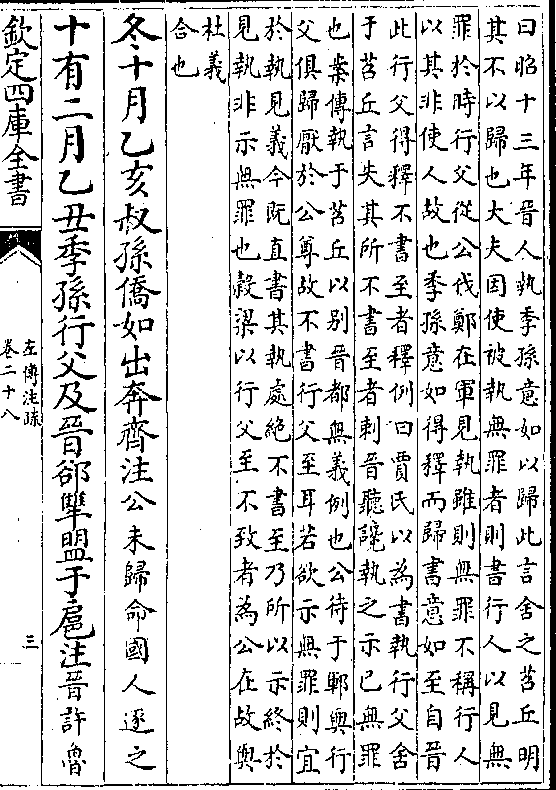 曰昭十三年晉人執季孫意如以歸此言舍之苕丘明
其不以歸也大夫因使被執無罪者則書行人以見無
罪於時行父從公伐鄭在軍見執雖則無罪不稱行人
以其非使人故也季孫意如得釋而歸書意如至自晉
此行父得釋不書至者釋例曰賈氏以為書執行父舍
于苕丘言失其所不書至者刺晉聽讒執之示已無罪
也案傳執于苕丘以別晉都無義例也公待于鄆與行
父俱歸厭於公尊故不書行父至耳若欲示無罪則宜
於執見義今既直書其執處絶不書至乃所以示終於
見執非示無罪也穀梁以行父至不致者為公在故與
杜義
合也
冬十月乙亥叔孫僑如出奔齊注公未歸命國人逐之
十有二月乙丑季孫行父及晉郤犨盟于扈注晉許魯
欽定四庫全書
左傳注疏
卷二十八
三